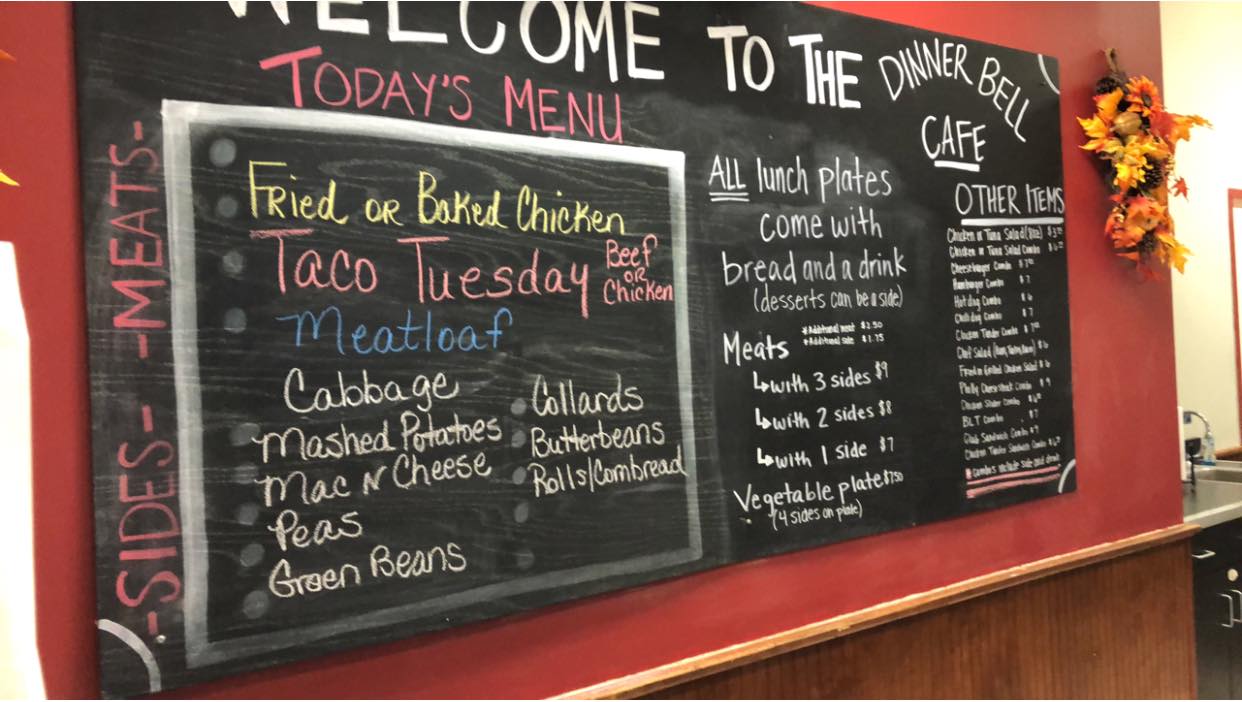 WELCOME TO THE DINNER BELL
CAFE
TODAY'S MENU
-MEATS-
Fried or Baked Chicken
Taco Tuesday Beef
or
Chicken
Meatloaf
-SIDES-
Cabbage
Mashed Potatoes
Mac N Cheese
Peas
Green Beans
Collards
Butterbeans
Rolls/Cornbread
ALL lunch plates
come with
bread and a drink
(desserts can be a side)
Meats
*Additional meat $2.50
*Additional side $1.75
with 3 sides $9
with 2 sides $8
with 1 side $7
Vegetable plate $7.50
(4 sides on plate)
OTHER ITEMS
Chicken or Tuna Salad
Chicken or Tuna Salad Combo
Cheeseburger Combo
Hamburger Combo $7
Hot dog Combo $6
Chili dog Combo $7
Chicken Tender Combo
Chef Salad
Fried or Grilled Chicken Salad
Philly Cheesesteak Combo $9
Chicken Slider Combo
BLT Combo $7
Club Sandwich Combo $9
Chicken Tender Sandwich Combo
*Combo's include side and drink